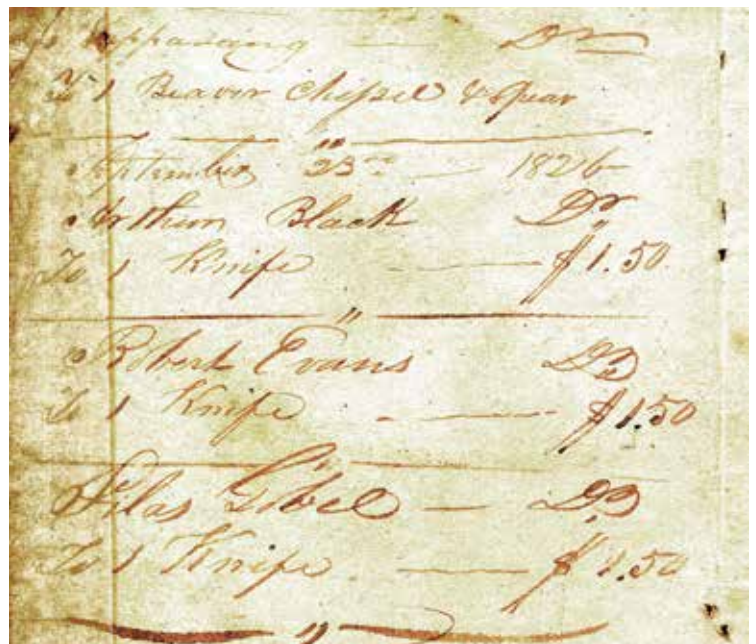 Dr
To 1 Beaver Chissel & Spear
September 23rd 1826
Arthur Black Dr
To 1 Knife $1.50
Robert Evans Dr
To 1 Knife $1.50
Silas Gobel Dr
To 1 Knife $1.50